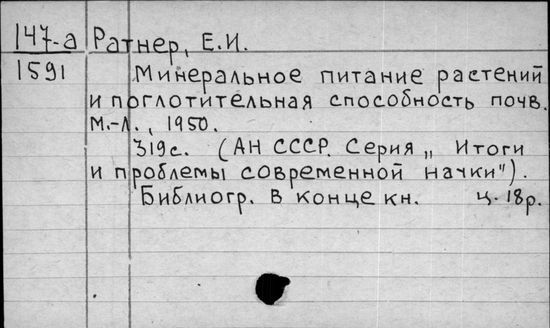 147-а Ратнер, Е.И.
1591 Минеральное питание растений
и поглотительная способность почв.
М.-Л., 1950.
319с. (АН СССР. Серия „ Итоги
и проблемы современной начки").
Библиогр. в конце кн. ц. 18р.